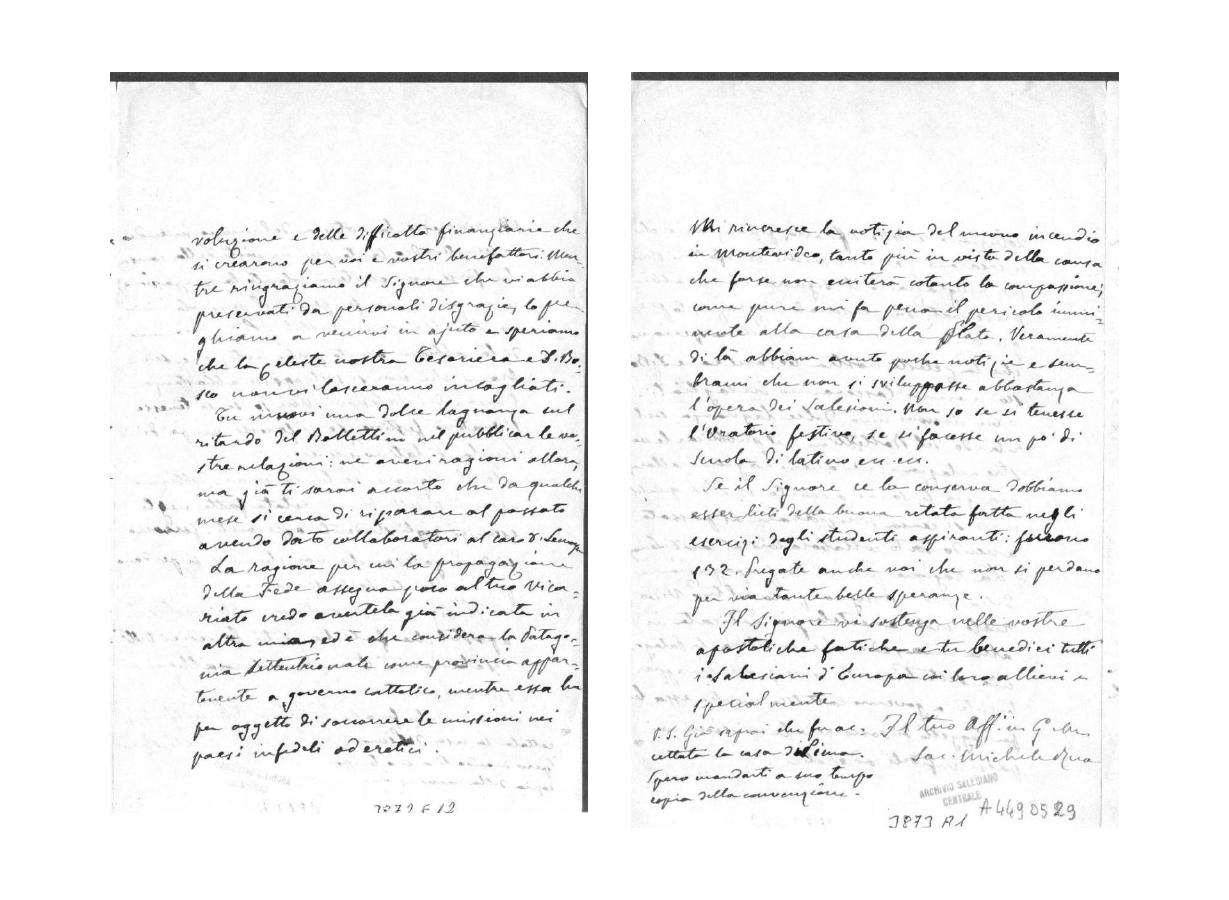 voluzione e delle difficoltà finanziarie che
si crearono per voi e vostri benefattori. Men-
tre ringraziamo il Signore che vi abbia
preservati da personali disgrazie, lo pre
ghiamo a venirvi in ajuto e speriamo
che la Celeste nostra Tesoriera e D. Bo-
sco non vi lasceranno incagliati.
Tu muovi una dolce lagnanza sul
ritardo del Bollettino nel pubblicar le vo-
stre relazioni: ne avevi ragioni allora,
ma già ti sarai accorto che da qualche
mese si cerca di riparare al passato
avendo dato collaboratori al caro D.
La ragione per cui la propagazione
della Fede assegna poco al tuo Vica-
riato credo avertela già indicata in
altra mia, ed è che considera la Patago-
nia Settentrionale come provincia appar-
tenente a governo cattolico, mentre essa ha
per oggetto di soccorrere le missioni nei
paesi infedeli od eretici.
3872 E 12
Mi rincresce la notizia del nuovo incendio
in Montevideo, tanto più in vista della causa
che forse non eciterà cotanto la compassione,
come pure mi fa pena il pericolo immi-
nente alla casa della Plata. Veramente
di là abbiam avuto poche notizie e sem-
brami che non si sviluppasse abbastanza
l'opera dei Salesiani. Non so se si tenesse
l'Oratorio festivo, se si facesse un po' di
scuola di latino ecc. ecc.
Se il Signore ce la conserva dobbiamo
esser lieti della buona retata fatta negli
esercizi degli studenti aspiranti: furono
132. Pregate anche voi che non si perdano
per via tante belle speranze.
Il Signore vi sostenga nelle vostre
apostoliche fatiche e tu benedici tutti
i Salesiani d'Europa coi loro allievi e
specialmente
Il tuo Aff. in G.
Sac. Michele Rua
P.S. Già saprai che fu ac-
cettata la casa di Lima.
Spero mandarti a suo tempo
copia della convenzione.
ARCHIVIO SALESIANO
CENTRALE
A 449 05 29
3873 A1